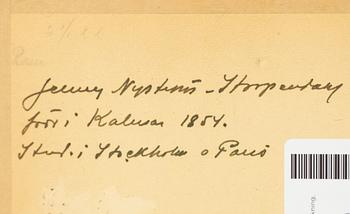 Jenny Nyström-Stoopendaal
född i Kalmar 1854.
Stud. i Stockholm o Paris